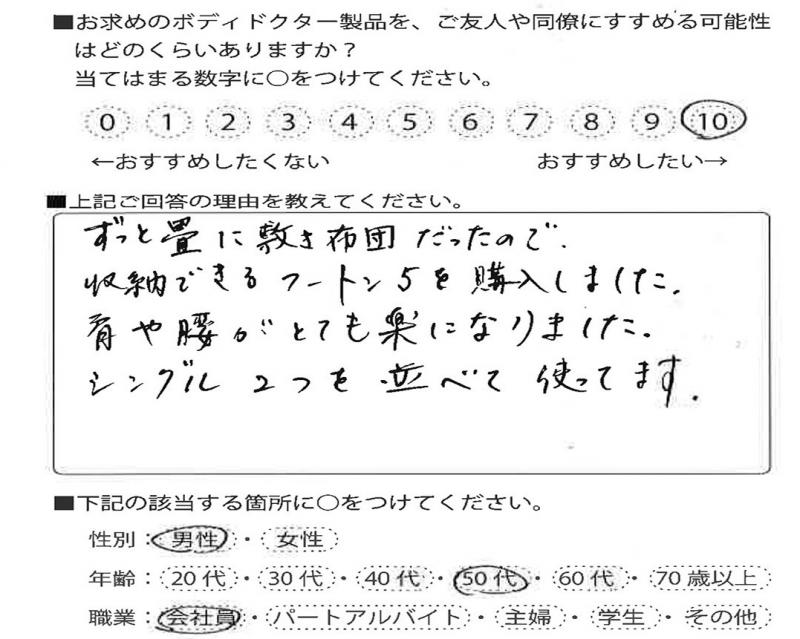 ■お求めのボディドクター製品を、ご友人や同僚にすすめる可能性
はどのくらいありますか？
当てはまる数字に○をつけてください。
0 1 2 3 4 5 6 7 8 9 10
←おすすめしたくない おすすめしたい→
■上記ご回答の理由を教えてください。
ずっと畳に敷き布団だったので、
収納できるフートン5を購入しました。
肩や腰がとても楽になりました。
シングル2つを並べて使ってます。
■下記の該当する箇所に○をつけてください。
性別：男性・女性
年齢：20代・30代・40代・50代・60代・70歳以上
職業：会社員・パートアルバイト・主婦・学生・その他